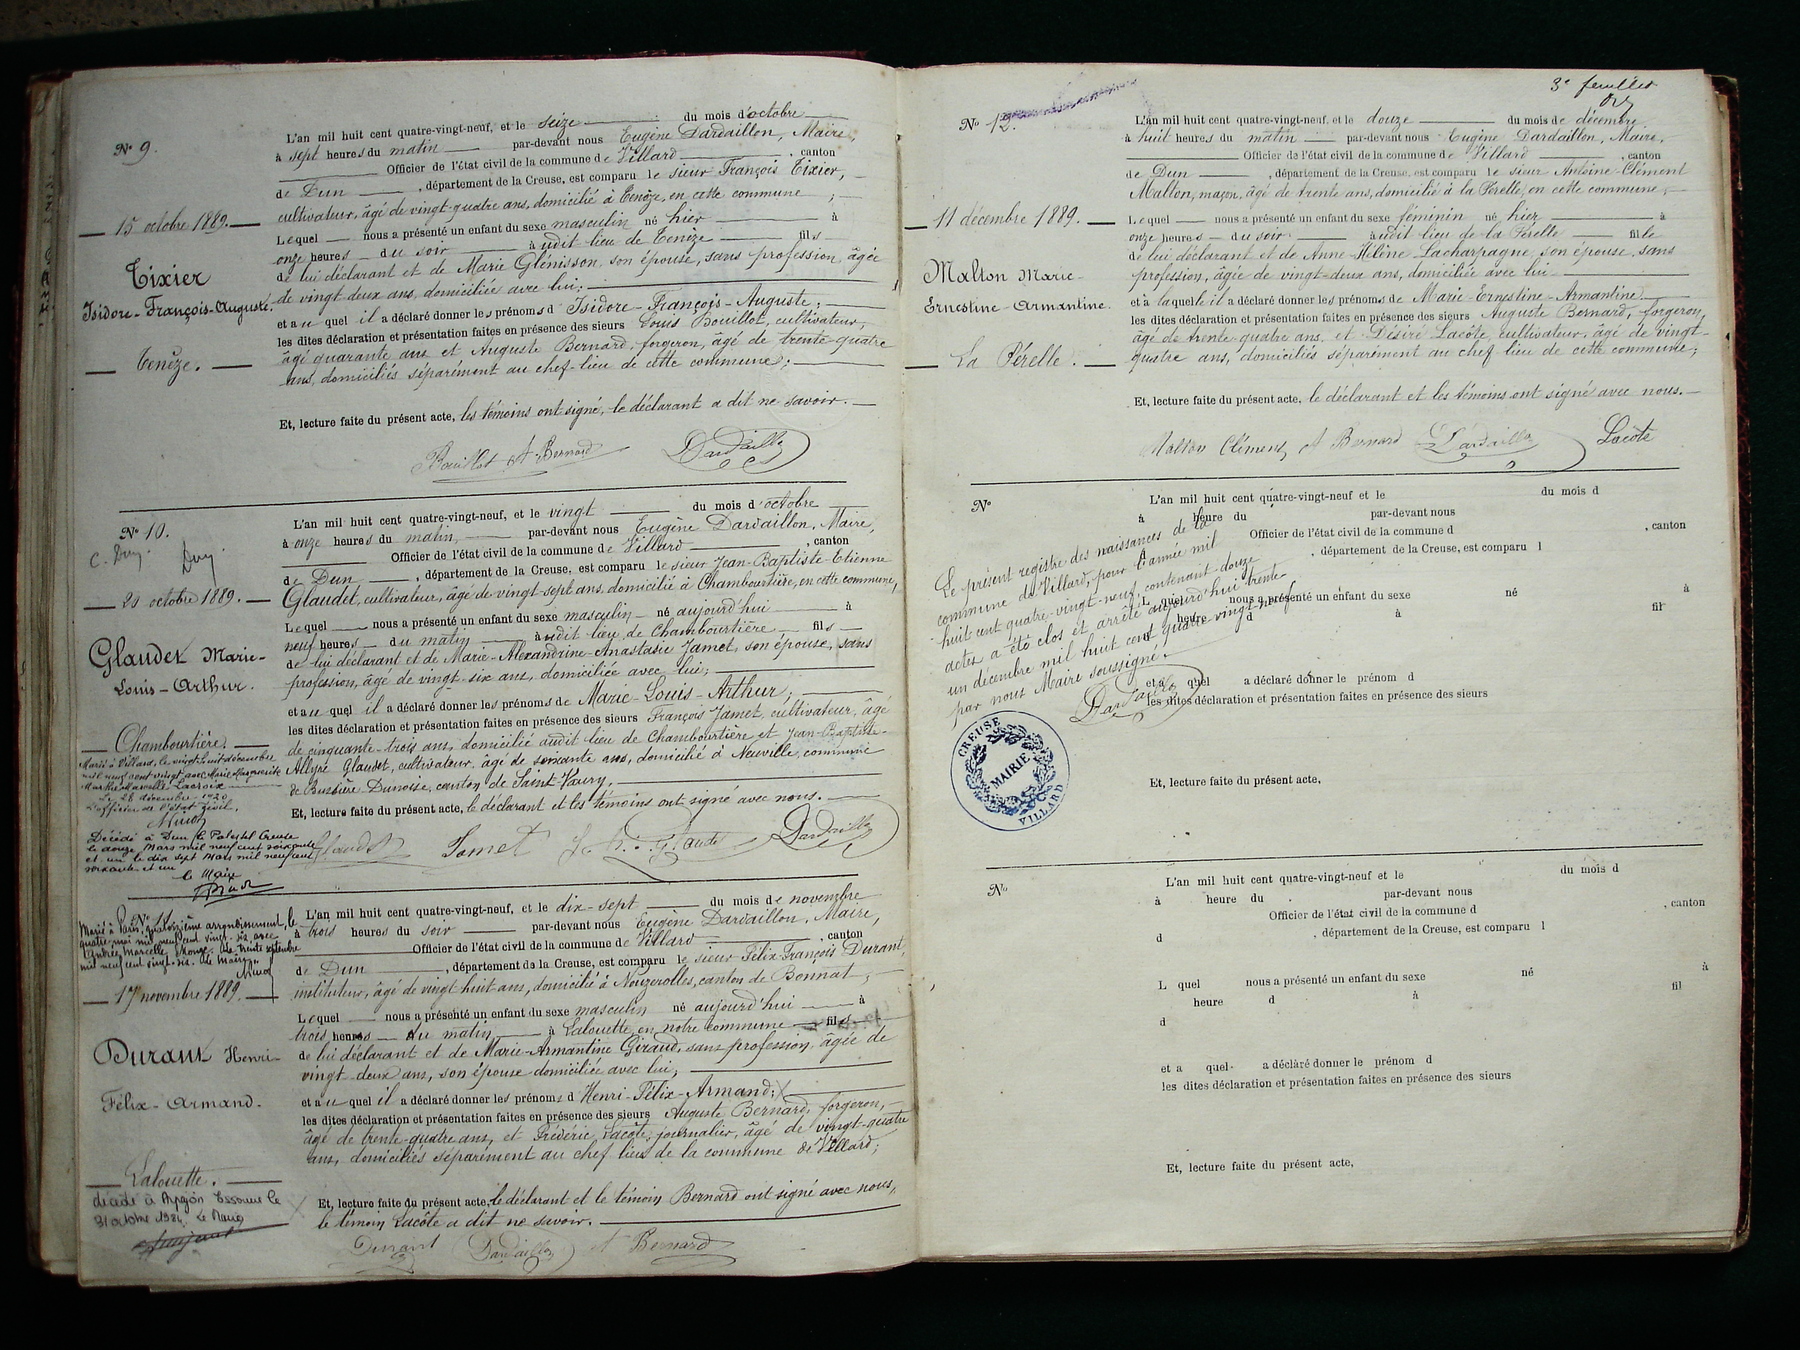 Nº 9.
15 octobre 1889.
Tixier
Isidore-François-Auguste.
Tenèze.
L'an mil huit cent quatre-vingt-neuf, et le seize du mois d'octobre
à sept heures du matin par-devant nous Eugène Dardaillon, Maire,
Officier de l'état civil de la commune de Villard, canton
de Dun, département de la Creuse, est comparu le sieur François Tixier,
cultivateur, âgé de vingt-quatre ans, domicilié à Tenèze, en cette commune;
Lequel nous a présenté un enfant du sexe masculin né hier à
onze heures du soir à udit lieu de Tenèze fils
de lui déclarant et de Marie Glénisson, son épouse, sans profession, âgée
de vingt-deux ans, domiciliée avec lui;
et au quel il a déclaré donner les prénoms d'Isidore-François-Auguste;
les dites déclaration et présentation faites en présence des sieurs Louis Bouillot, cultivateur,
âgé quarante ans et Auguste Bernard, forgeron, âgé de trente-quatre
ans, domiciliés séparément au chef-lieu de cette commune;
Et, lecture faite du présent acte, les témoins ont signé, le déclarant a dit ne savoir.
Bouillot A Bernard Dardaillon
Nº 10.
20 octobre 1889.
Glaudet Marie-
Louis-Arthur.
Chambourtière.
Marié à Villard, le vingt huit décembre
mil neuf cent vingt avec Marie Marguerite
Marthe Marcelle Lacroix
Le 28 décembre 1920
L'officier de l'état civil,
Décédé à Dun le Palestel Creuse
le douze Mars mil neuf cent soixante
et un le dix sept Mars mil neuf cent
soixante et un
le Maire
L'an mil huit cent quatre-vingt-neuf, et le vingt du mois d'octobre
à onze heures du matin, par-devant nous Eugène Dardaillon, Maire,
Officier de l'état civil de la commune de Villard, canton
de Dun, département de la Creuse, est comparu le sieur Jean-Baptiste-Etienne
Glaudet, cultivateur, âgé de vingt-sept ans, domicilié à Chambourtière, en cette commune,
Lequel nous a présenté un enfant du sexe masculin né aujourd'hui à
neuf heures du matin à udit lieu de Chambourtière fils
de lui déclarant et de Marie-Alexandrine-Anastasie Jamet, son épouse, sans
profession, âgée de vingt-six ans, domiciliée avec lui;
et au quel il a déclaré donner les prénoms de Marie-Louis-Arthur;
les dites déclaration et présentation faites en présence des sieurs François Jamet, cultivateur, âgé
de cinquante-trois ans, domicilié audit lieu de Chambourtière et Jean-Baptiste-
Glaudet, cultivateur, âgé de soixante ans, domicilié à Neuville, commune
de Bussière Dunoise, canton de Saint Vaury,
Et, lecture faite du présent acte, le déclarant et les témoins ont signé avec nous.
Glaudet Jamet Glaudet Dardaillon
Nº 11
Marié à Paris, quatorzième arrondissement, le
quatre mai mil neuf cent vingt-dix, avec
Andrée Marcelle
mil neuf cent vingt-dix. Le Maire,
17 novembre 1889.
Durant Henri-
Félix-Armand.
Lalouette.
décédé à Arpajon Essonne le
31 octobre 1984. Le Maire
L'an mil huit cent quatre-vingt-neuf, et le dix-sept du mois de novembre
à trois heures du soir par-devant nous Eugène Dardaillon, Maire,
Officier de l'état civil de la commune de Villard, canton
de Dun, département de la Creuse, est comparu le sieur Félix-François Durant,
instituteur, âgé de vingt huit ans, domicilié à Nouzerolles, canton de Bonnat;
Lequel nous a présenté un enfant du sexe masculin né aujourd'hui à
trois heures du matin à Lalouette, en notre commune fils
de lui déclarant et de Marie-Armantine Giraud, sans profession, âgée de
vingt-deux ans, son épouse domiciliée avec lui;
et au quel il a déclaré donner les prénoms d'Henri-Félix-Armand;
les dites déclaration et présentation faites en présence des sieurs Auguste Bernard, forgeron,
âgé de trente-quatre ans, et Frédéric Lacôte, journalier, âgé de vingt-quatre
ans, domiciliés séparément au chef lieu de la commune de Villard;
Et, lecture faite du présent acte, le déclarant et le témoin Bernard ont signé avec nous,
le témoin Lacôte a dit ne savoir.
Durant Dardaillon A Bernard
3e feuillet
Nº 12.
11 décembre 1889.
Mallon Marie-
Ernestine-Armantine.
La Pérelle.
L'an mil huit cent quatre-vingt-neuf, et le douze du mois de décembre
à huit heures du matin par-devant nous Eugène Dardaillon, Maire,
Officier de l'état civil de la commune de Villard, canton
de Dun, département de la Creuse, est comparu le sieur Antoine-Clément
Mallon, maçon, âgé de trente ans, domicilié à la Pérelle, en cette commune,
Lequel nous a présenté un enfant du sexe féminin né hier à
onze heures du soir à udit lieu de la Pérelle fille
de lui déclarant et de Anne-Hélène Lacharpagne, son épouse, sans
profession, âgée de vingt-deux ans, domiciliée avec lui
et à laquelle il a déclaré donner les prénoms de Marie-Ernestine-Armantine
les dites déclaration et présentation faites en présence des sieurs Auguste Bernard, forgeron,
âgé de trente quatre ans, et Désiré Lacôte, cultivateur, âgé de vingt-
quatre ans, domiciliés séparément au chef lieu de cette commune;
Et, lecture faite du présent acte, le déclarant et les témoins ont signé avec nous.
Mallon Clément A Bernard Dardaillon Lacôte
Nº
L'an mil huit cent quatre-vingt-neuf et le du mois d
à heure du par-devant nous
Officier de l'état civil de la commune d , canton
, département de la Creuse, est comparu l
L quel nous a présenté un enfant du sexe né à
heure d à fil
et a quel a déclaré donner le prénom d
les dites déclaration et présentation faites en présence des sieurs
Et, lecture faite du présent acte,
Le présent registre des naissances de la
commune de Villard, pour l'année mil
huit cent quatre-vingt-neuf, contenant douze
actes a été clos et arrêté aujourd'hui trente-
un décembre mil huit cent quatre vingt-neuf
par nous Maire soussigné.
Dardaillon
CREUSE
MAIRIE
VILLARD
Nº
L'an mil huit cent quatre-vingt-neuf et le du mois d
à heure du par-devant nous
Officier de l'état civil de la commune d , canton
d , département de la Creuse, est comparu l
L quel nous a présenté un enfant du sexe né à
heure d à fil
d
et a quel a déclaré donner le prénom d
les dites déclaration et présentation faites en présence des sieurs
Et, lecture faite du présent acte,